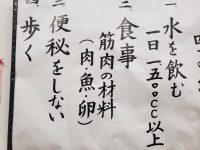 一 水を飲む
一日一五〇〇cc以上
二 食事
筋肉の材料
(肉・魚・卵)
三 便秘をしない
四 歩く